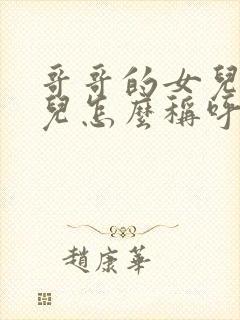 哥哥的女兒
兒怎麼稱呼
趙康華